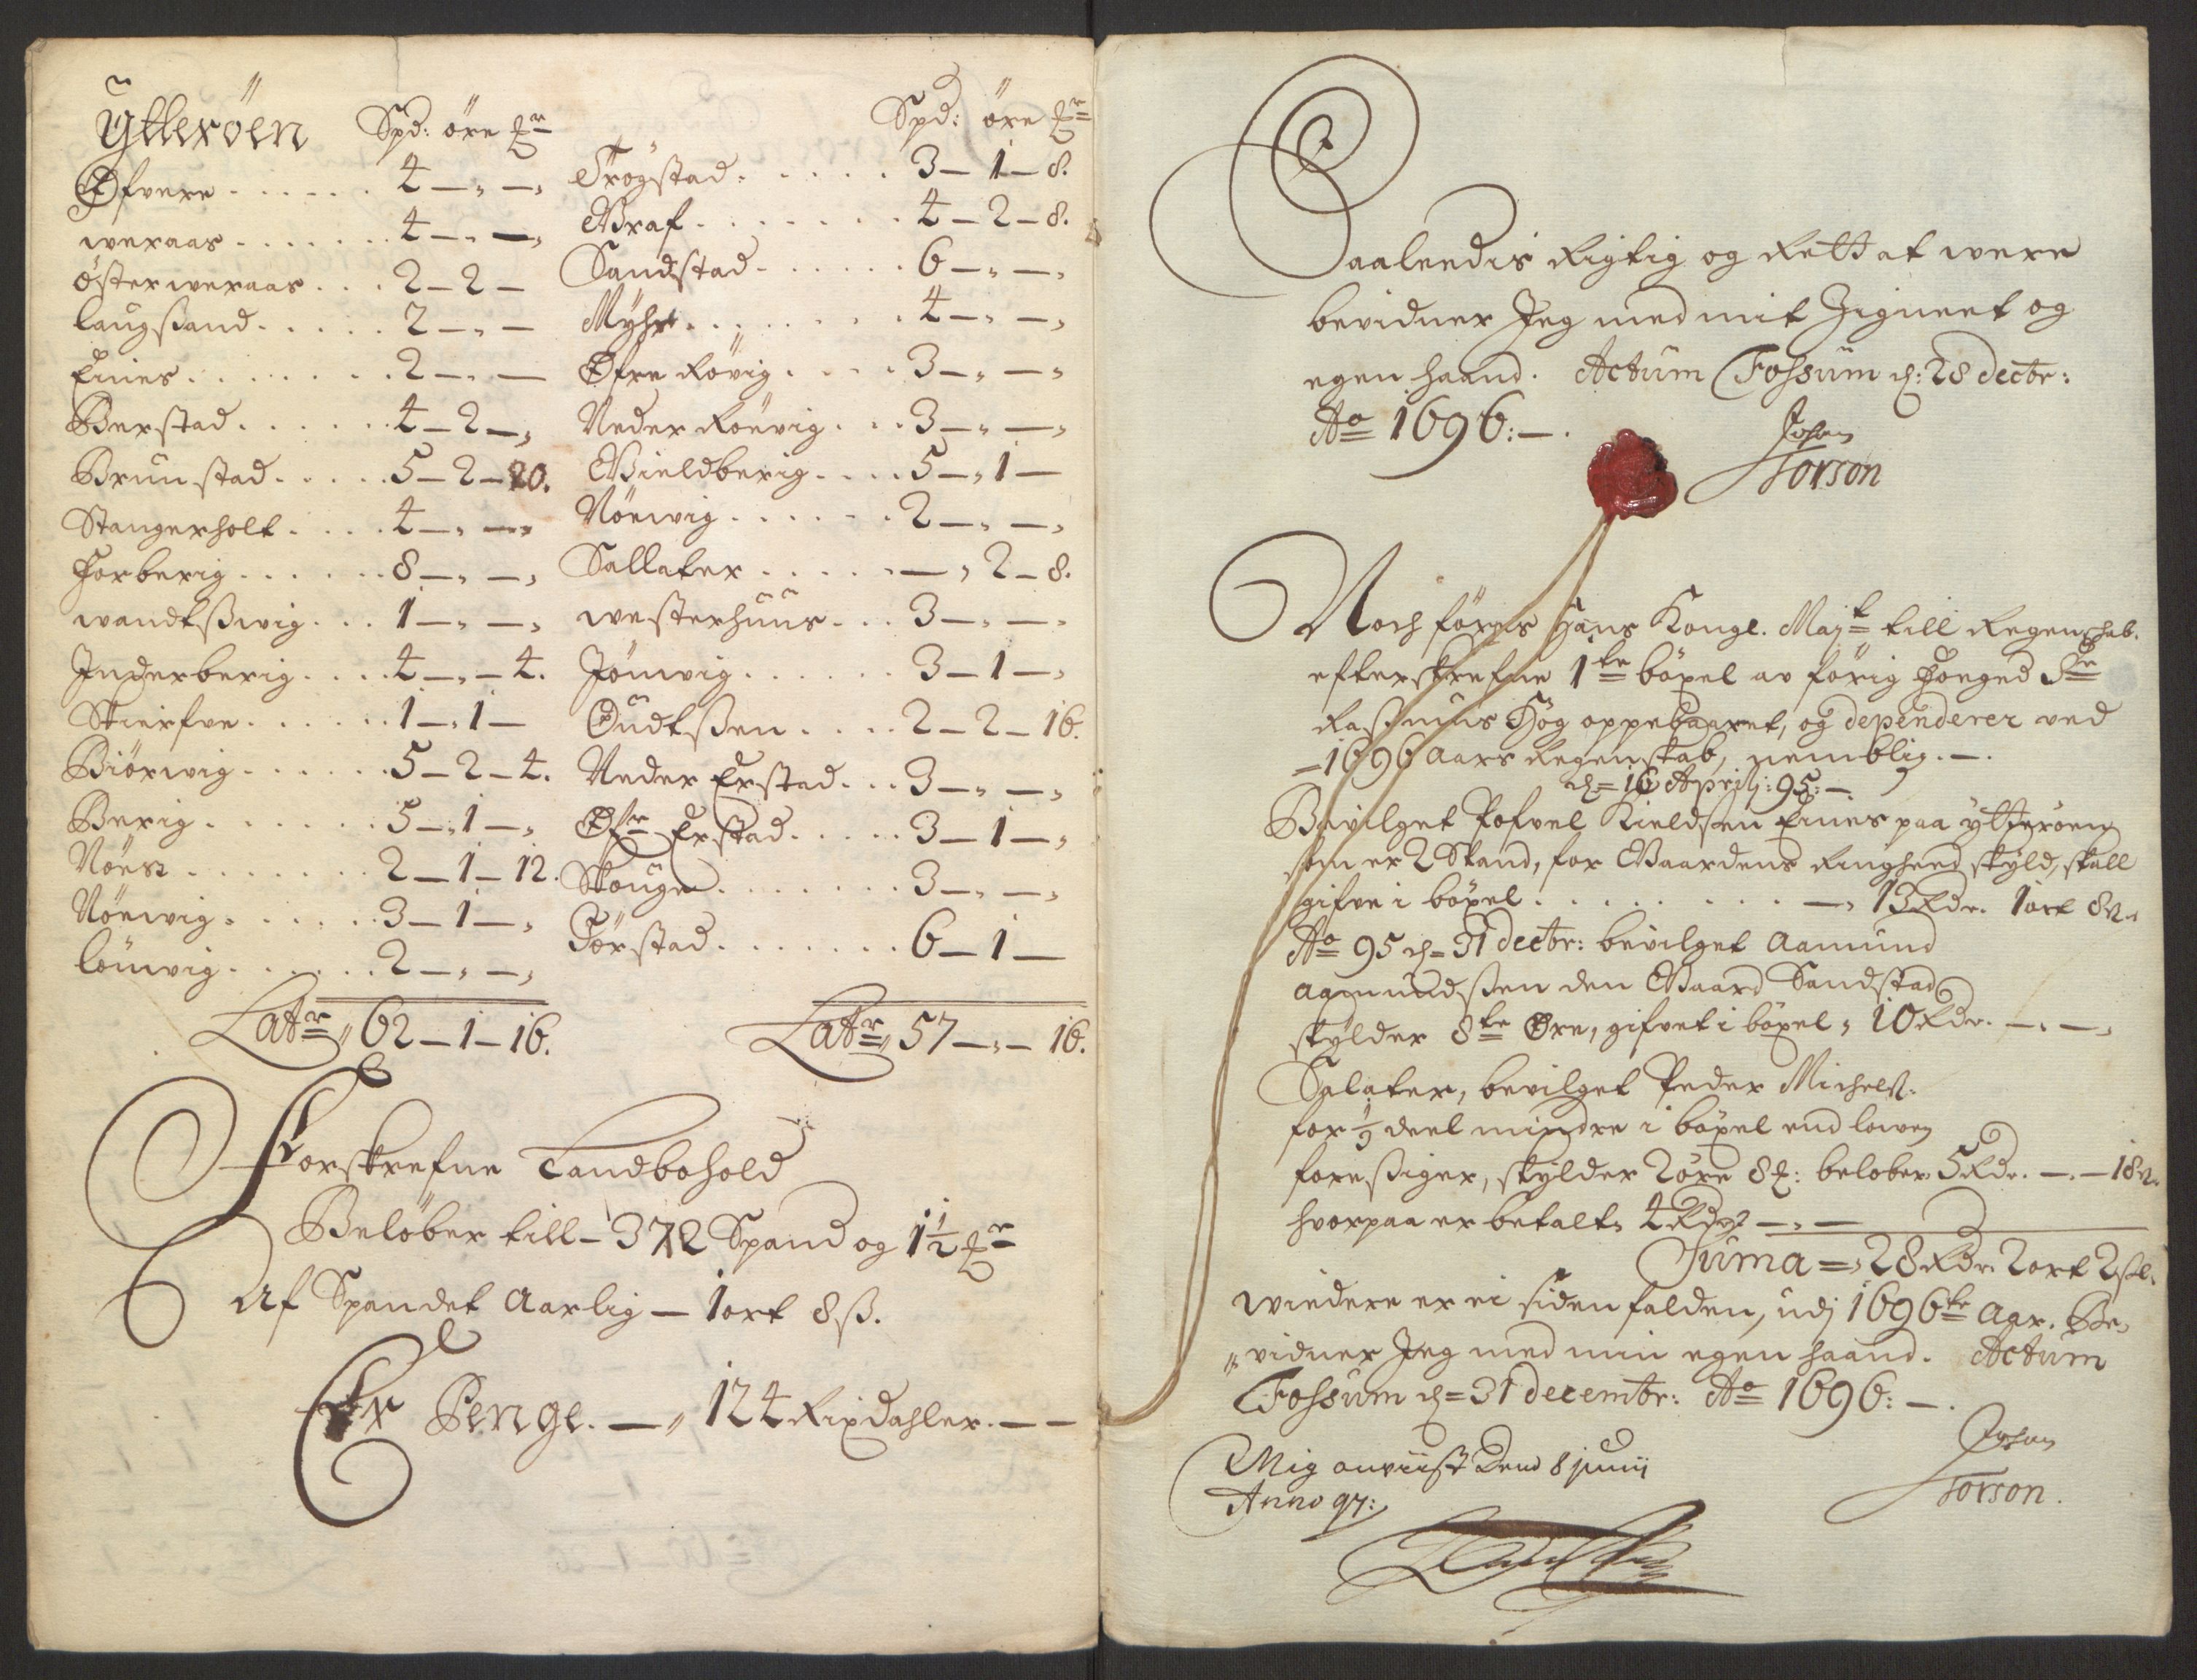 Ÿtterøen Spd: öre Lr
Øfvere . . . . . . 4 — „ — „
weraas . . . . . . 4 — „ — „
österweraas . . . 2 — 2 —
laugsand . . . . . 2 — „ —
Eines . . . . . . . 2 — „ —
Berstad . . . . . . 4 — 2 — „
Brunstad . . . . . 5 — 2 — 20.
Stangerholt . . . . 4 — „ — „
Forberig . . . . . . 8 — „ — „
wandtßwig . . . 1 — „ — „
Inderberig . . . . 4 — „ — 4.
Skierfve . . . . . . 1 — „ 1 —
Biörwig . . . . . . 5 — 2 — 4.
Berig . . . . . . . 5 — „ 1 — „
Nöest . . . . . . . 2 — 1 — 12.
Nöewig . . . . . . 3 — 1 — „
löuwig . . . . . . 2 — „ — „
Latr „ 62 — 1 — 16.
Spd: öre Lr
Trögstad . . . . . . 3 — 1 — 8.
Graf . . . . . . . 4 — 2 — 8.
Sandstad . . . . . . 6 — „ — „
Myhr . . . . . . . 4 — „ — „
Øfre Rövig . . . . 3 — „ — „
Neder Röevig . . . 3 — „ — „
Gieldberig . . . . 5 — „ 1 —
Nöewig . . . . . . 2 — „ — „
Sallater . . . . . — „ 2 — 8.
westerhuus . . . 3 — „ — „
Jönwig . . . . . . 3 — 1 — „
Oudtßen . . . . 2 — 2 — 16.
Neder Erstad . . . 3 — „ — „
Øfre Erstad . . . . . 3 — 1 — „
Skouge . . . . . . . 3 — „ — „
Börstad . . . . . . . 6 — 1 —
Latr „ 57 — „ — 16.
Forskrefne Landbohold
Beløber till — 372 Spand og 1½ Lr
Af Spandet Aarlig — 1 ort 8 ß.
Er Penge. — „ 124 Rixdahler. — —
Saaleedis Rigtig og Rett at were
bevidner Jeg med mit Zigneet og
egen haand. Actum Fossum d: 28 decbr:
Ao 1696: — .
Johan
Torson
Noch föres Hans Kongl. Majt till Regenschab.
efterskrefne 1te böxel av förig Foeged Sr
Rasmus Høg oppebaaret, og dependerer ved
— 1696 Aars Regenskab, nemblig. — .
d = 16 Aprilj: 95: —
Bevilget Pofvel Kieldsen Eines paa ytterøen
som er 2 Spand, for Gaardens Ringheed skyld, skall
gifve i böxel . . . . . . . . . — „ 13 Rdr. 1 ort 8 ß.
Ao 95 d = 31 decbr: bevilget Aamund
Aamundßen den Gaard Sandstad
skylder 8te Øre, gifvet i böxel „ 10 Rdr. — „ — „
Salater, bevilget Peder Michelß:
for ½ deel mindre i böxel end lowen
foreßiger, skylder 2 öre 8 L: belober 5 Rdr. — . — 18 ß.
hvorpaa er betalt „ 4 Rdr — „ —
Suma = „ 28 Rdr. 2 ort 2 sk.
wiedere er ei siden falden, udj 1696te Aar. Be„
„vidner Jeg med min egen haand. Actum
Fossum d = 31 decembr: Ao 1696: — .
Johan
Torson.
Mig anviist Dend 8 junij
Anno 97: